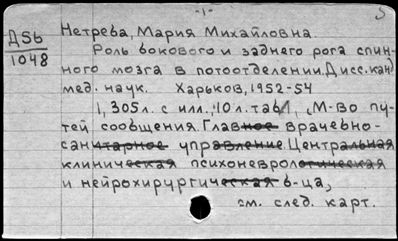 -1-
5
ДSb
1048
Нетрева, Мария Михайловна.
Роль бокового и заднего рога спин-
ного мозга в потоотделении. Дисс. канд.
мед. наук. Харьков, 1952-54
1, 305 л. с илл., 10 л. табл, (М-во пу-
тей сообщения. Главное врачебно-
санитарное управление. Центральная
клиническая психоневрологическая
и нейрохирургическая б-ца)
см. след. карт.